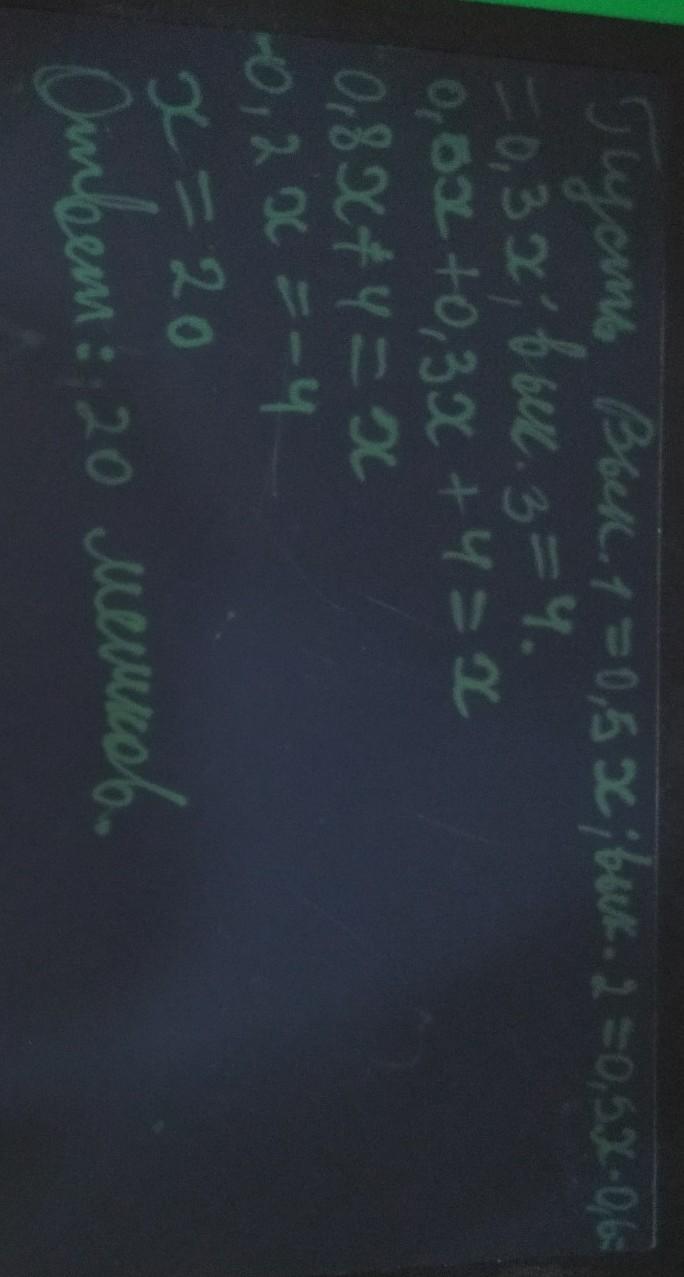 Пусть вык. 1 = 0,5x; вык. 2 = 0,5x · 0,6 =
= 0,3x; вык. 3 = 4.
0,5x + 0,3x + 4 = x
0,8x + 4 = x
-0,2x = -4
x = 20
Ответ: 20 мешков.